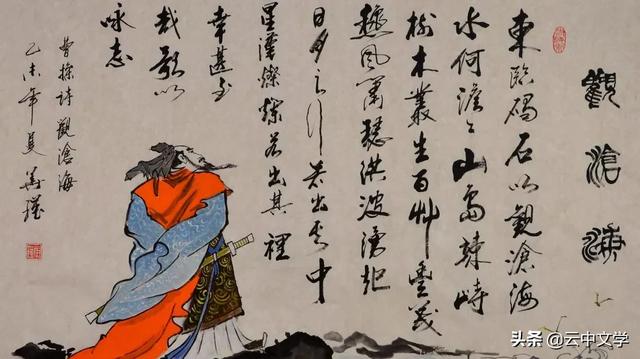 觀滄海
東臨碣石以觀滄海
水何澹々山島竦峙
樹木叢生百艸豐茂
秋風蕭瑟洪波湧起
日月之行若出其中
星漢燦爛若出其裡
幸甚至
哉歌以
詠志
曹操詩觀滄海
乙未年夏
头条 @云中文学